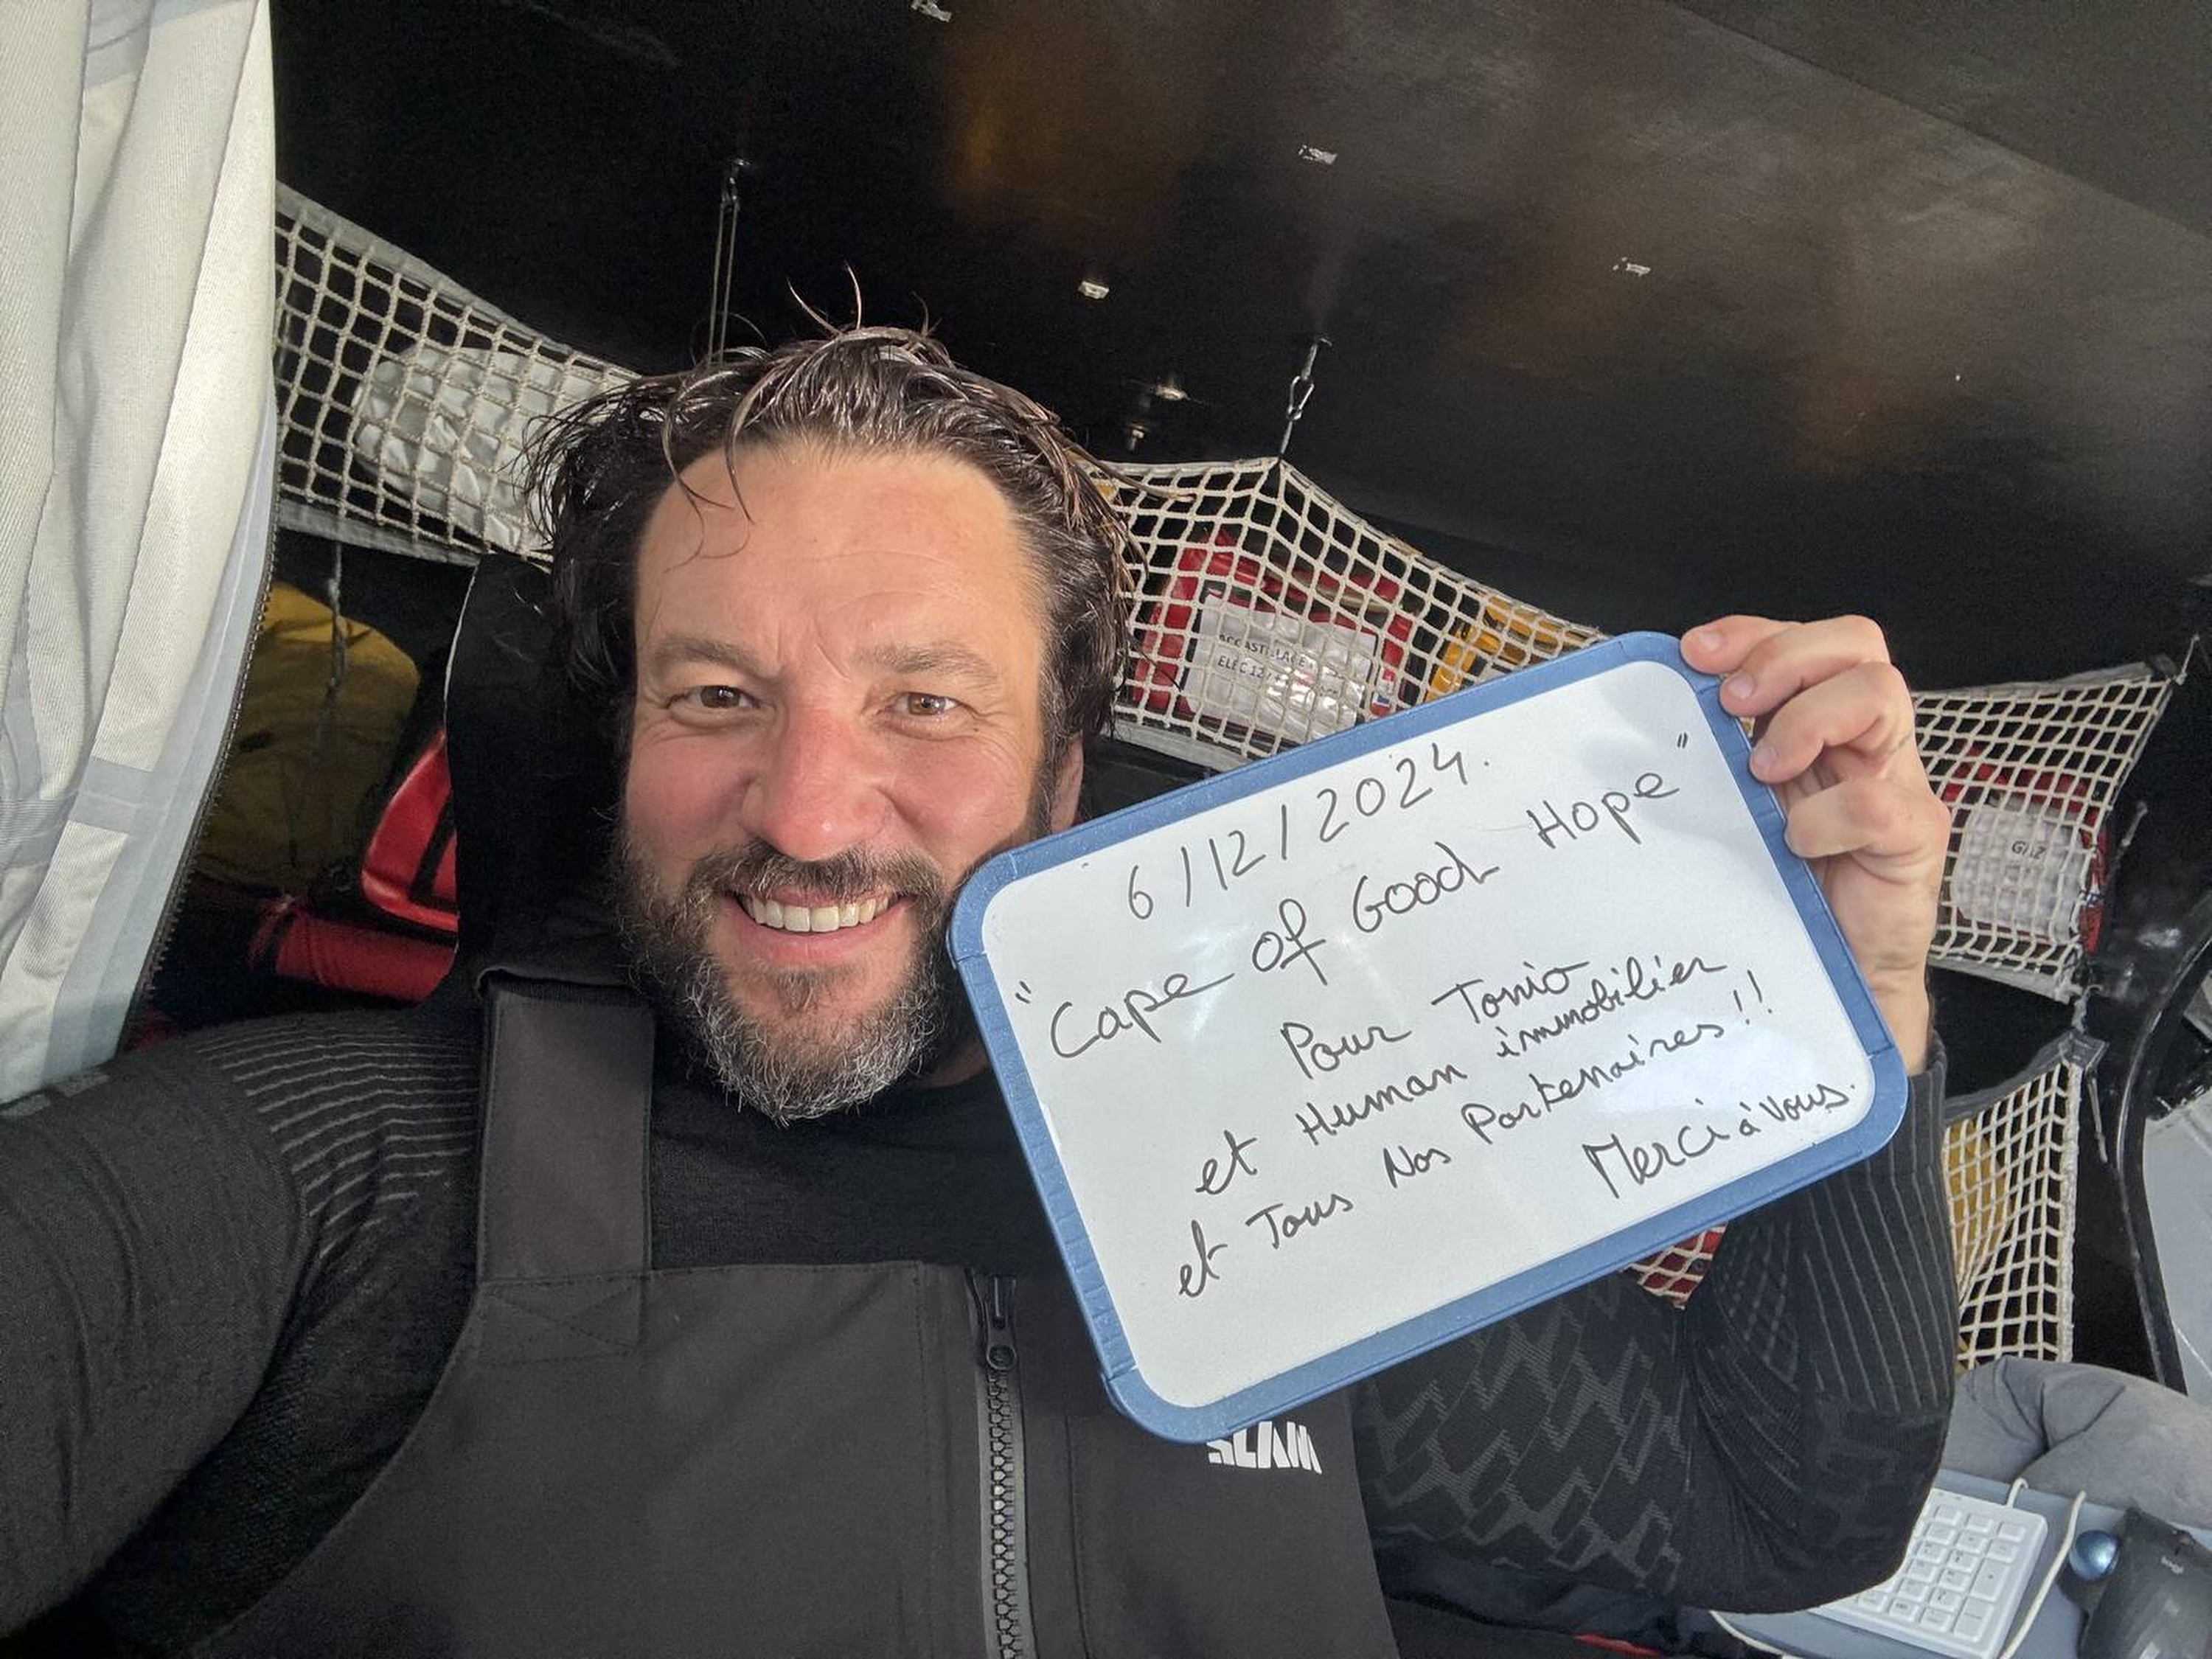 ACCASTILLAGE
ELEC 12
6/12/2024.
"Cape of Good Hope"
Pour Tonio
et Human immobilier
et Tous Nos Partenaires!!
Merci à vous.
GAZ
SLAM